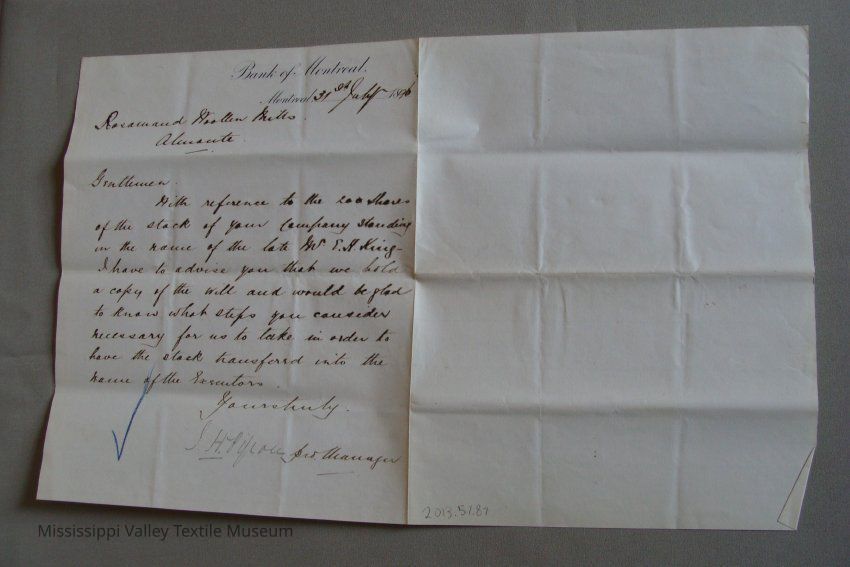 Bank of Montreal,
Montreal 31st July 1896
Rosamand Woollen Mills.
Almonte.
Gentlemen.
With reference to the 200 shares
of the stock of your Company standing
in the name of the late Mr E. H. King-
I have to advise you that we hold
a copy of the will and would be glad
to know what steps you consider
necessary for us to take in order to
have the stock transferrd into the
name of the Executors.
Yours truly.
Manager
2013.51.87
Mississippi Valley Textile Museum